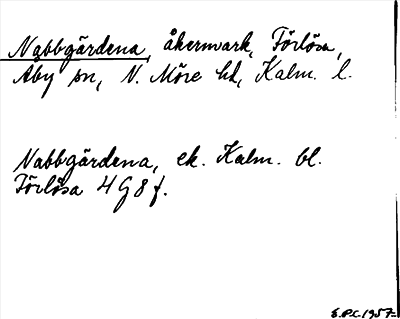 Nabbgärdena, åkermark, Förlösa,
Åby sn, N. Möre hd, Kalm. l.
Nabbgärdena, ek. Kalm. bl.
Förlösa 4 G 8 f.
E.P.C. 1957